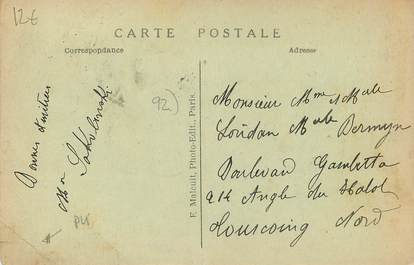 12€
CARTE POSTALE
Correspondance
Adresse
92)
Bonnes amitiés
Sokolowski
E. Malcuit, Photo-Edit., Paris.
Monsieur Mme et Melle
Loridan Melle Dermyn
Boulevard Gambetta
214 Angle du Halot
Tourcoing Nord